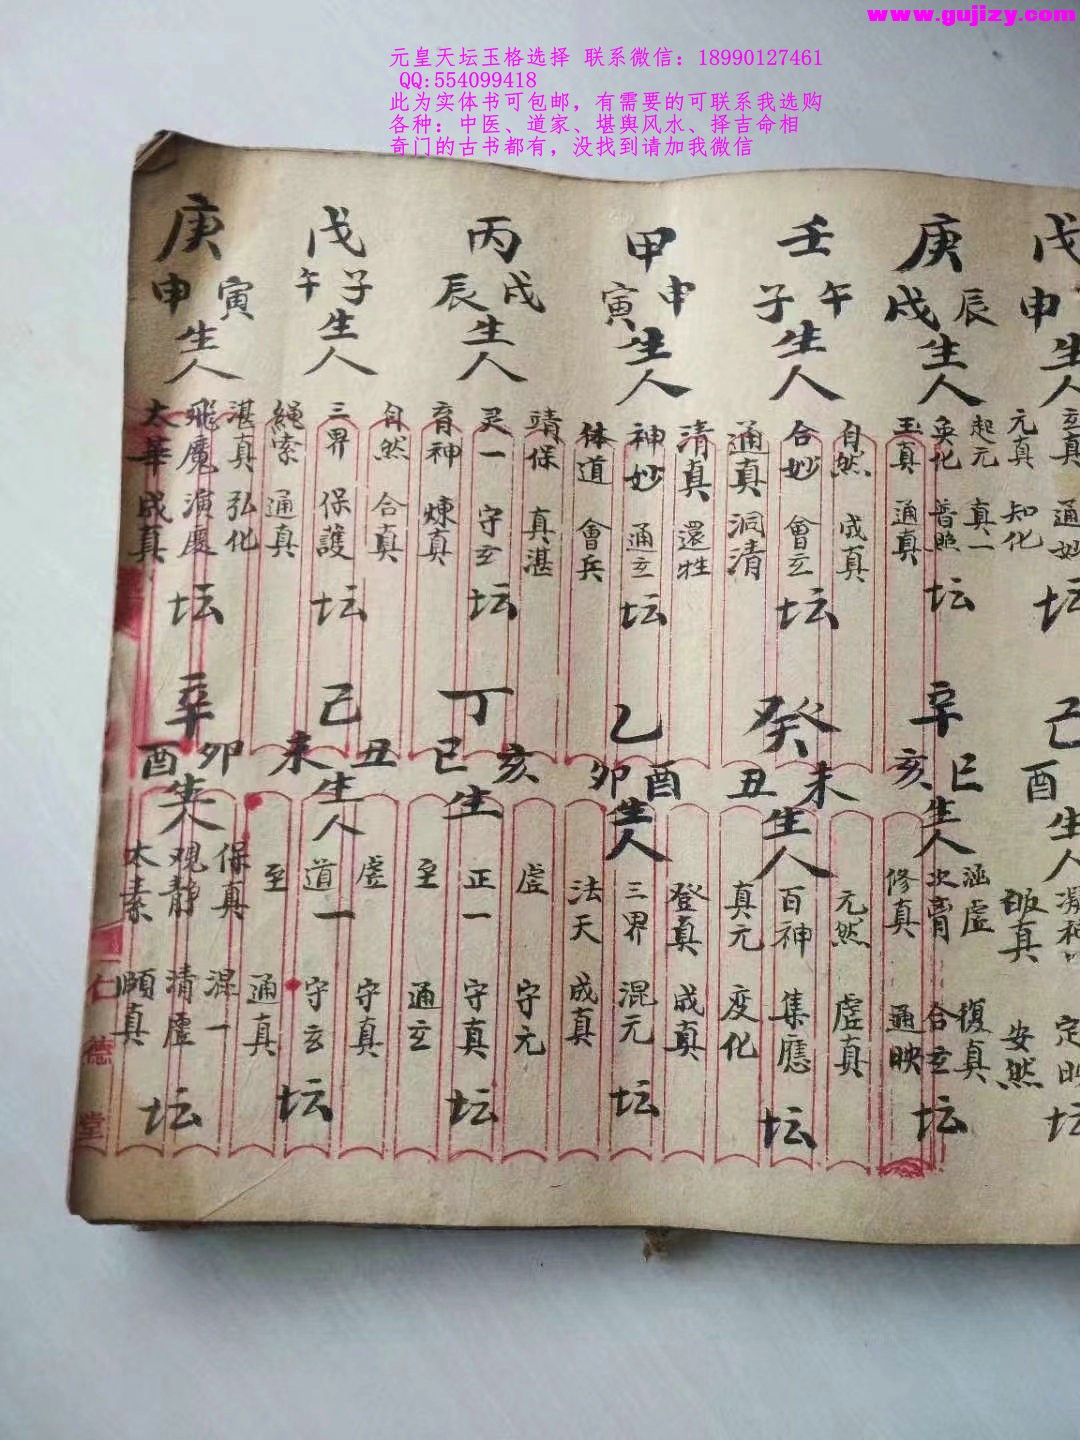 www.gujizy.com
元皇天坛玉格选择 联系微信：18990127461
QQ:554099418
此为实体书可包邮，有需要的可联系我选购
各种：中医、道家、堪舆风水、择吉命相
奇门的古书都有，没找到请加我微信
戊申
生人
玄真 通妙
元真 知化
坛
庚辰戌
生人
起元 真一
奂化 普照
玉真 通真
坛
壬午子
生人
自然 成真
合妙 會玄
通真 洞清
坛
甲申寅
生人
清真 還牲
神妙 通玄
体道 會兵
坛
丙戌辰
生人
靖保 真湛
灵一 守玄
育神 煉真
坛
戊子午
生人
自然 合真
三界 保護
繩索 通真
坛
庚寅申
生人
湛真 弘化
飛魔 演慶
太華 成真
坛
己酉
生人
凝神 定
皈真 安然
坛
辛巳亥
生人
涵虚 復真
次膏 合玄
修真 通映
坛
癸未丑
生人
元然 虚真
百神 集應
真元 变化
坛
乙酉卯
生人
登真 成真
三界 混元
法天 成真
坛
丁亥巳
生
虚 守元
正一 守真
至 通玄
坛
己丑未
生人
虚 守真
道一 守玄
至 通真
坛
辛卯酉
生人
保真 混一
观静 清虚
太素 順真
坛
仁德堂